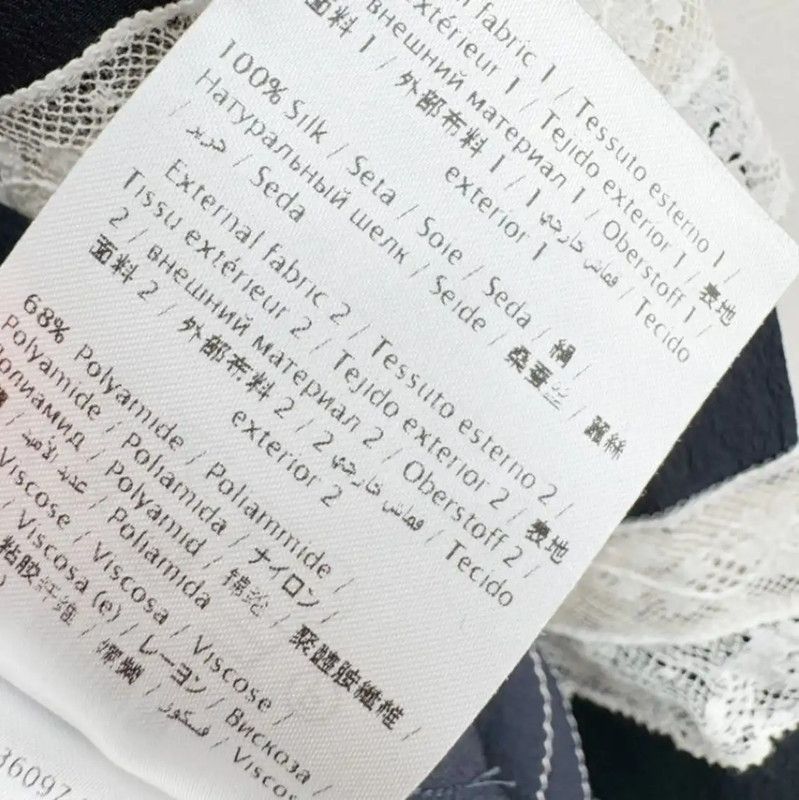 fabric 1 / Tessuto esterno 1 /
extérieur 1 / Tejido exterior 1 / 表地
внешний материал 1 / Oberstoff 1 /
面料 1 / 外部布料 1 / 1 قماش خارجي / Tecido
exterior 1
100% Silk / Seta / Soie / Seda / 絹 /
Натуральный шелк / Seide / 桑蚕丝 /
/ حرير / Seda
External fabric 2 / Tessuto esterno 2 /
Tissu extérieur 2 / Tejido exterior 2 / 表地
2 / внешний материал 2 / Oberstoff 2 /
面料 2 / 外部布料 2 / 2 قماش خارجي / Tecido
exterior 2
68% Polyamide / Poliammide /
Polyamide / Poliamida / ナイロン /
Полиамид / Polyamid / 锦纶 / 聚醯胺纖維 /
عديد الأميد / Poliamida
Viscose / Viscosa / Viscose /
/ Viscosa (e) / レーヨン / Вискоза
粘胶纤维 / فسكوز / Viscos
36097